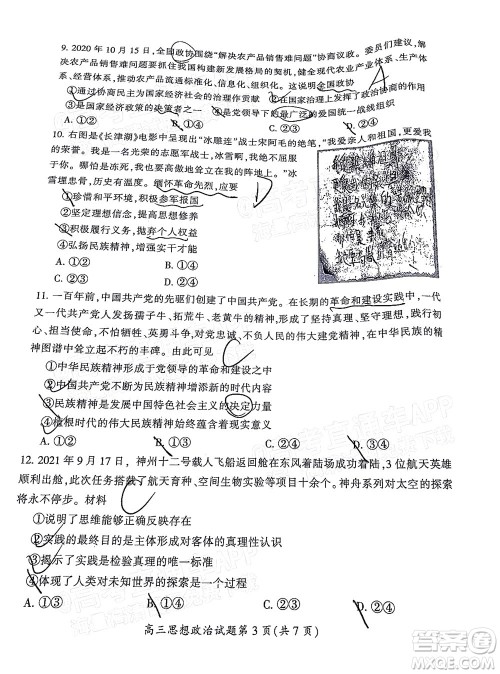 9. 2020 年 10 月 15 日，全国政协围绕“解决农产品销售难问题”协商议政。委员们建议，解
决农产品销售难问题要抓住我国构建新发展格局的契机，健全现代农业产业体系、生产体
系、经营体系，推动农产品流通标准化、信息化、国际化发展。这说明全国政协 A
①通过参政议政为我国国家经济社会的治理作贡献 ②在国家治理体系中具有
③是国家经济政策的决策者之一 ④是党领导下的最广泛的爱国统一战线组织
A. ①② B. ①③ C. ②④ D. ③④
10. 右图是《长津湖》电影中呈现出“冰雕连”战士宋阿毛的绝笔，“我爱亲人和祖国，更爱我
的荣誉。我是一名光荣的志愿军战士，冰雪啊，我决不屈服
于你。哪怕是冻死，我也要高傲的耸立在我的阵地上。”冰
雪埋忠骨，历史有温度。缅怀革命先烈，应要 D
①珍惜和平环境，积极参军报国
②坚定理想信念，成就革命事业
③积极履行义务，抛弃个人权益
④弘扬民族精神，增强实干才能
A. ①② B. ①③ C. ③④ D. ②④
11. 一百年前，中国共产党的先驱们创建了中国共产党。在长期的革命和建设实践中，一代
又一代共产党人发扬孺子牛、拓荒牛、老黄牛的精神，形成了坚持真理、坚守理想，践行初
心、担当使命，不怕牺牲、英勇斗争，对党忠诚、不负人民的伟大建党精神，在中华民族的精
神图谱中耸立起不朽的丰碑。由此可见 C
①中华民族精神形成于党领导的革命和建设之中
②中国共产党人为民族精神增添新的时代内容
③民族精神是发展中国特色社会主义的决定力量
④植根时代的伟大民族精神支撑中华民族前进
A. ①② B. ①③ C. ②④ D. ③④
12. 2021 年 9 月 17 日，神州十二号载人飞船返回舱在东风着陆场成功着陆，3 位航天英雄
顺利出舱，此次任务搭载了航天育种、空间生物实验等项目。神舟系列对太空的探索
将永不停步。材料 C
①说明了思维能够正确反映存在
②实践的最终目的是主体形成对客体的真理性认识
③揭示了实践是检验真理的唯一标准
④体现了人类对未知世界的探索是一个过程
A. ①③ B. ②③ C. ①④ D. ②④
高三思想政治试题第 3 页(共 7 页)